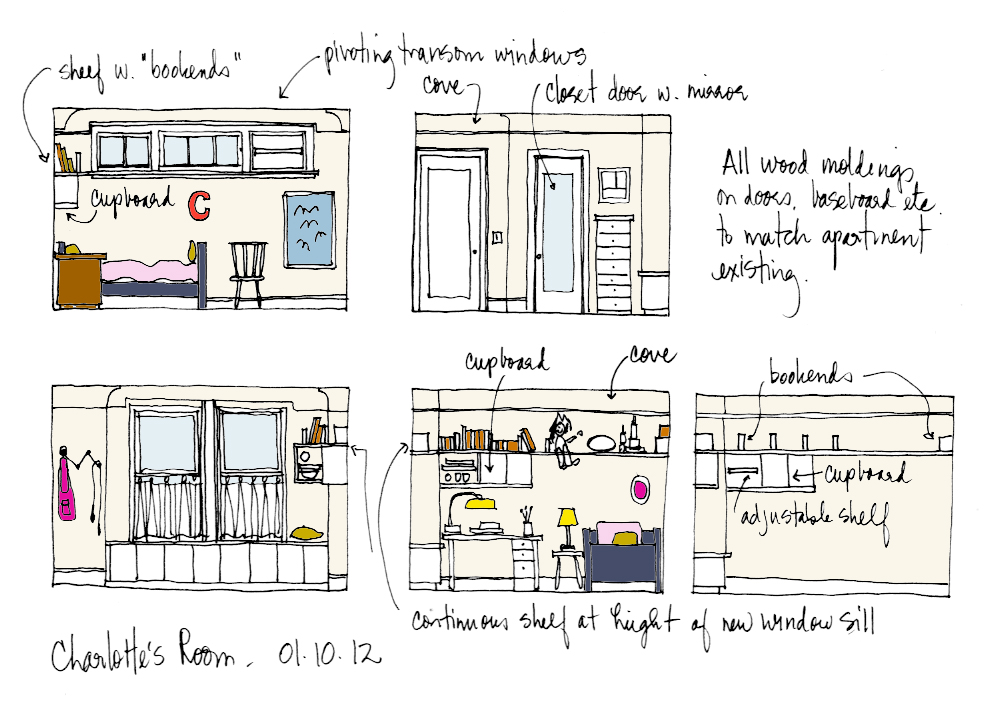 shelf w. "bookends"
pivoting transom windows
cove
closet door w. mirror
cupboard
C
All wood moldings
on doors, baseboard etc.
to match apartment
existing.
cupboard
cove
bookends
cupboard
adjustable shelf
continuous shelf at height of new window sill
Charlotte's Room. 01.10.12